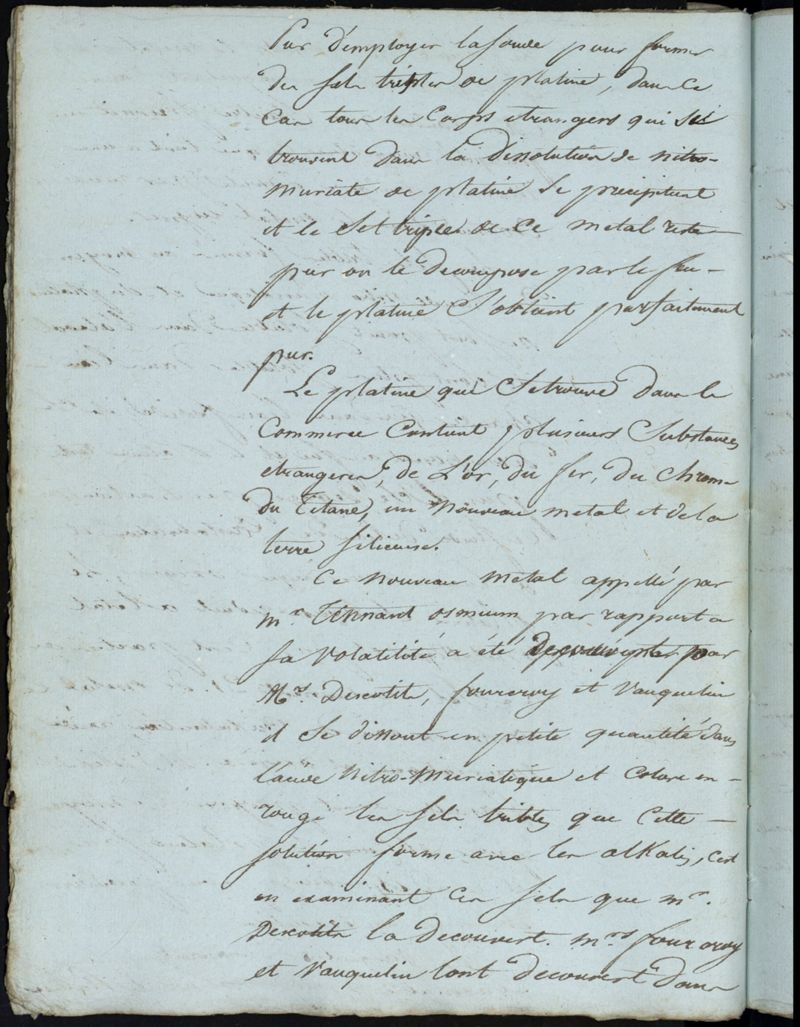 Pur d'employer la soude pour former
des sels triples de platine, dans ce
Cas tous les Corps etrangers qui se
trouvent dans la dissolution de nitro-
muriate de platine se precipitent
et le Sel triple de ce metal reste
pur on le decompose par le feu
et le platine s'obtient parfaitement
pur.
Le platine qui se trouve dans le
Commerce Contient plusieurs Substances
etrangeres, de L'or, du fer, du chrome
du Titane, un nouveau metal et de la
terre siliceuse.
Ce nouveau metal appellé par
mr. Tennant osmium par rapport a
sa volatilité a été par
Mrs. Descotils, fourcroy et vauquelin
il se dissout en petite quantité dans
l'acide nitro-muriatique et colore en
rouge les sels triples que cette
solution forme avec les alkalis, c'est
en examinant ces sels que mr.
Descotils la decouvert. mrs fourcroy
et vauquelin l'ont decouvert dans